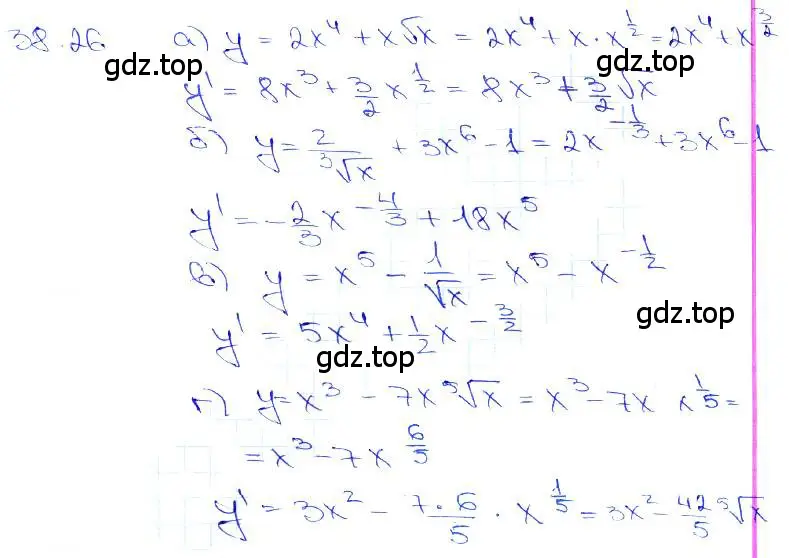 38.26 а) y = 2x⁴ + x√x = 2x⁴ + x · x^(1/2) = 2x⁴ + x^(3/2)
gdz.top
y' = 8x³ + 3/2 x^(1/2) = 8x³ + 3/2 √x
gdz.top
б) y = 2/³√x + 3x⁶ - 1 = 2x^(-1/3) + 3x⁶ - 1
y' = -2/3 x^(-4/3) + 18x⁵
в) y = x⁵ - 1/√x = x⁵ - x^(-1/2)
gdz.top
y' = 5x⁴ + 1/2 x^(-3/2)
gdz.top
г) y = x³ - 7x ⁵√x = x³ - 7x x^(1/5) =
= x³ - 7x^(6/5)
y' = 3x² - 7·6/5 · x^(1/5) = 3x² - 42/5 ⁵√x